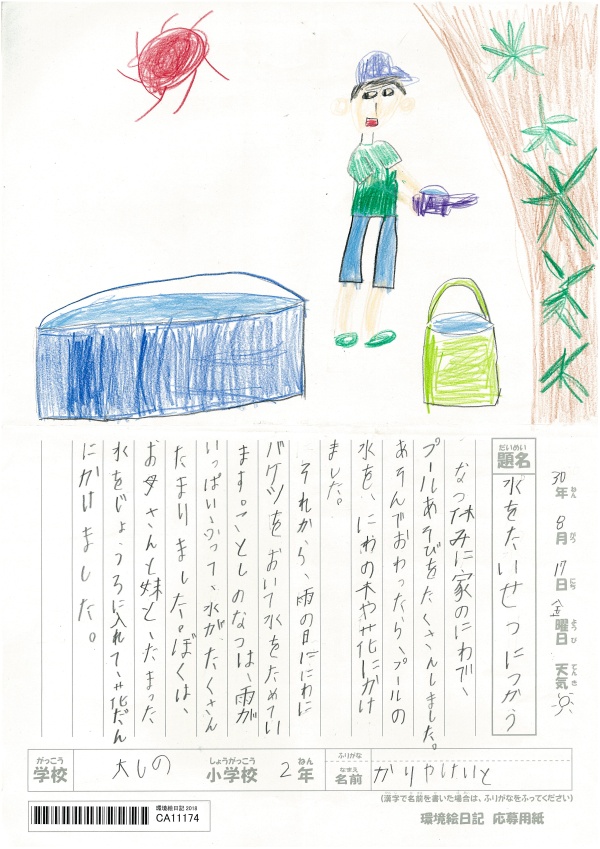 30年 8月 17日 金曜日 天気
ねん がつ にち ようび てんき
だいめい
題名
水をたいせつにつかう
なつ休みに家のにわで、
プールあそびをたくさんしました。
あそんでおわったら、プールの
水を、にわの木や花にかけ
ました。
それから、雨の日ににわに
バケツをおいて水をためてい
ます。ことしのなつは、雨が
いっぱいふって、水がたくさん
たまりました。ぼくは、
お母さんと妹と、たまった
水をじょうろに入れて、花だん
にかけました。
がっこう
学校
大しの
しょうがっこう
小学校
2年
ねん
ふりがな
なまえ
名前
かりやけいと
(漢字で名前を書いた場合は、ふりがなをふってください)
環境絵日記 2018
CA11174
環境絵日記 応募用紙